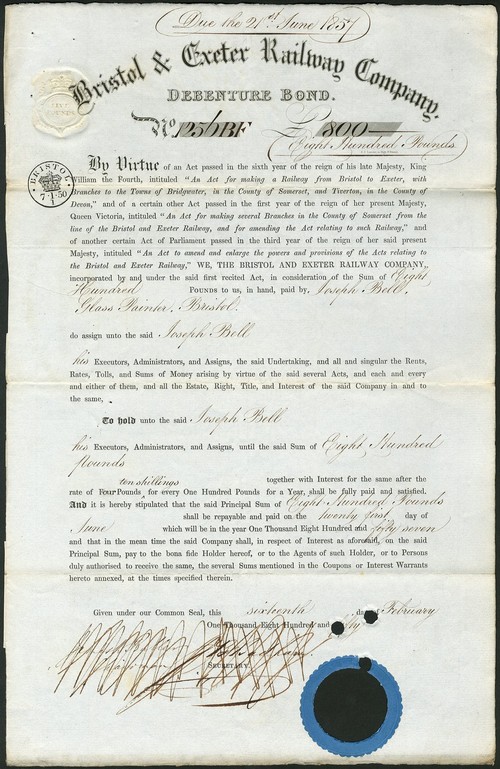 Due the 21st June 1857
Bristol & Exeter Railway Company.
DEBENTURE BOND.
FIVE
POUNDS
No. 1256BF £ 800—
Eight Hundred Pounds
BRISTOL
7-1-50
By Virtue of an Act passed in the sixth year of the reign of his late Majesty, King
William the Fourth, intituled "An Act for making a Railway from Bristol to Exeter, with
Branches to the Towns of Bridgwater, in the County of Somerset, and Tiverton, in the County of
Devon," and of a certain other Act passed in the first year of the reign of her present Majesty,
Queen Victoria, intituled "An Act for making several Branches in the County of Somerset from the
line of the Bristol and Exeter Railway, and for amending the Act relating to such Railway," and
of another certain Act of Parliament passed in the third year of the reign of her said present
Majesty, intituled "An Act to amend and enlarge the powers and provisions of the Acts relating
to the Bristol and Exeter Railway," WE, THE BRISTOL AND EXETER RAILWAY COMPANY,
incorporated by and under the said first recited Act, in consideration of the Sum of Eight
Hundred POUNDS to us, in hand, paid by Joseph Bell,
Glass Painter, Bristol.
do assign unto the said Joseph Bell
his Executors, Administrators, and Assigns, the said Undertaking, and all and singular the Rents,
Rates, Tolls, and Sums of Money arising by virtue of the said several Acts, and each and every
and either of them, and all the Estate, Right, Title, and Interest of the said Company in and to
the same,
To hold unto the said Joseph Bell
his Executors, Administrators, and Assigns, until the said Sum of Eight Hundred
Pounds
together with Interest for the same after the
ten shillings
rate of Four Pounds for every One Hundred Pounds for a Year, shall be fully paid and satisfied.
And it is hereby stipulated that the said Principal Sum of Eight Hundred Pounds
shall be repayable and paid on the twenty first day of
June which will be in the year One Thousand Eight Hundred and fifty seven
and that in the mean time the said Company shall, in respect of Interest as aforesaid, on the said
Principal Sum, pay to the bona fide Holder hereof, or to the Agents of such Holder, or to Persons
duly authorised to receive the same, the several Sums mentioned in the Coupons or Interest Warrants
hereto annexed, at the times specified therein.
Given under our Common Seal, this sixteenth day of February
One Thousand Eight Hundred and fifty
SECRETARY.